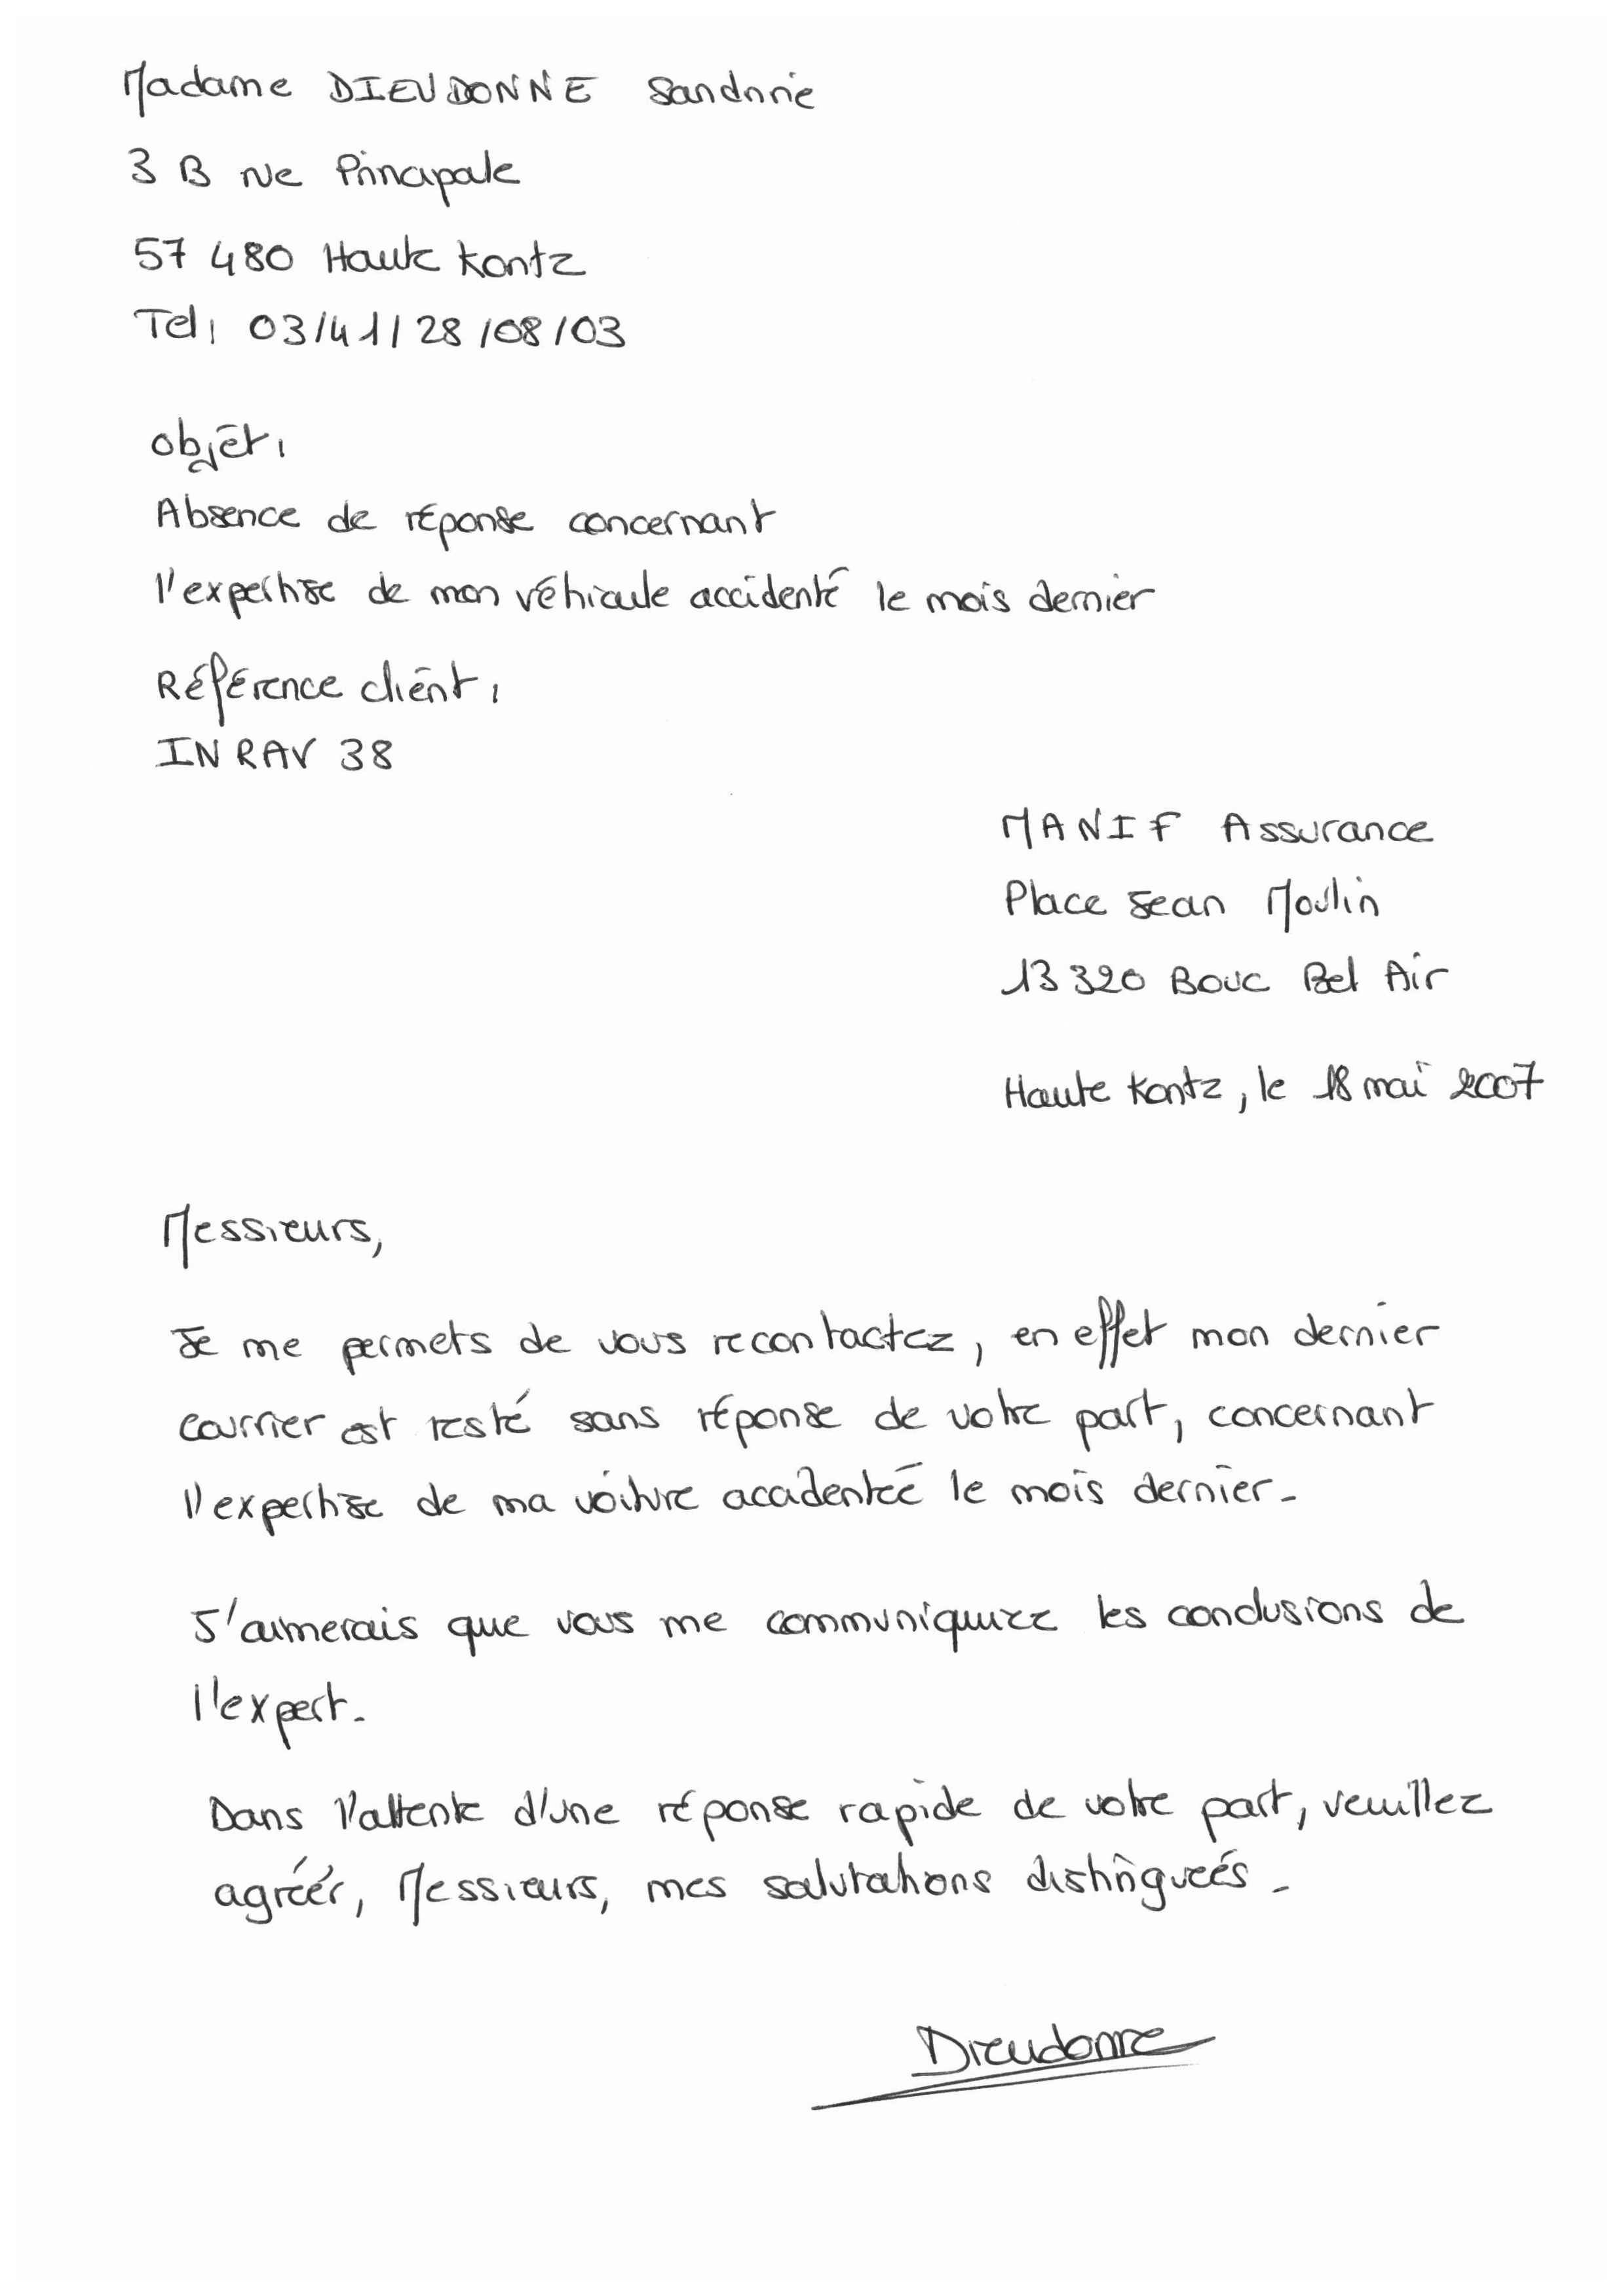 Madame DIEUDONNE Sandrine
3 B rue Principale
57 480 Haute Kontz
Tel: 03/41/28/08/03
objet:
Absence de réponse concernant
l'expertise de mon véhicule accidenté le mois dernier
Référence client:
INRAV 38
MANIF Assurance
Place Jean Moulin
13 320 Bouc Bel Air
Haute Kontz, le 18 mai 2007
Messieurs,
Je me permets de vous recontactez, en effet mon dernier
courrier est resté sans réponse de votre part, concernant
l'expertise de ma voiture accidentée le mois dernier.
J'aimerais que vous me communiquiez les conclusions de
l'expert.
Dans l'attente d'une réponse rapide de votre part, veuillez
agréer, Messieurs, mes salutations distinguées.
Dieudonne